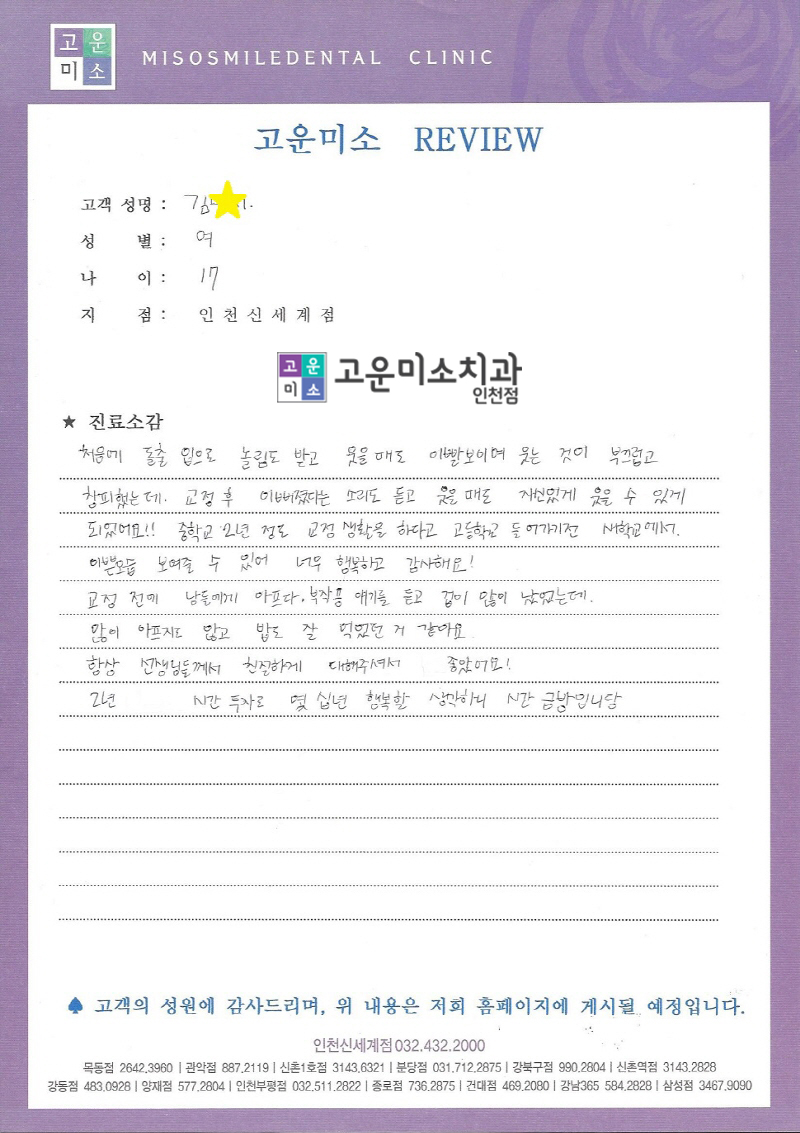 고운
미소
MISOSMILEDENTAL CLINIC
고운미소 REVIEW
고객 성명 : 김
성 별 : 여
나 이 : 17
지 점 : 인천신세계점
고운
미소
고운미소치과
인천점
★ 진료소감
처음에 돌출 입으로 놀림도 받고 웃을때도 이빨보이며 웃는 것이 부끄럽고
창피했는데. 교정 후 이뻐졌다는 소리도 듣고 웃을때도 자신있게 웃을 수 있게
되었어요!! 중학교 2년 정도 교정 생활을 하다고 고등학교 들어가기전 새학교에서.
이쁜모습 보여줄 수 있어 너무 행복하고 감사해요!
교정 전에 남들에게 아프다. 부작용 얘기를 듣고 겁이 많이 났었는데.
많이 아프지도 않고 밥도 잘 먹었던 거 같아요
항상 선생님들께서 친절하게 대해주셔서 좋았어요!
2년 시간 투자로 몇 십년 행복할 생각하니 시간 금방입니당
♠ 고객의 성원에 감사드리며, 위 내용은 저희 홈페이지에 게시될 예정입니다.
인천신세계점 032.432.2000
목동점 2642.3960 | 관악점 887.2119 | 신촌1호점 3143.6321 | 분당점 031.712.2875 | 강북구점 990.2804 | 신촌역점 3143.2828
강동점 483.0928 | 양재점 577.2804 | 인천부평점 032.511.2822 | 종로점 736.2875 | 건대점 469.2080 | 강남365 584.2828 | 삼성점 3467.9090